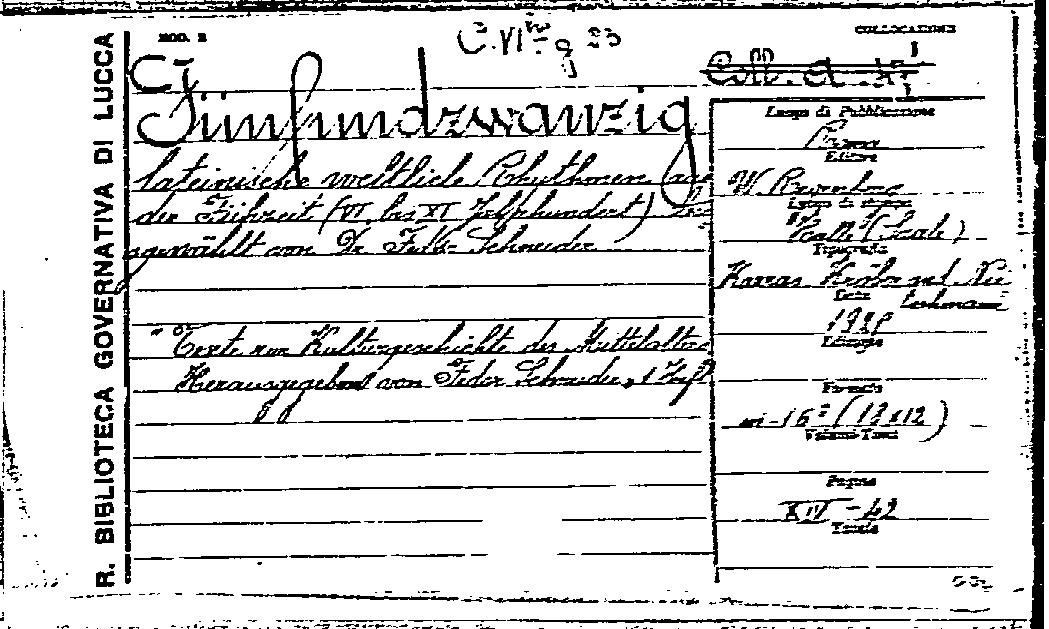 R. BIBLIOTECA GOVERNATIVA DI LUCCA
MOD. 2
C. VI g 23
COLLOCAZIONE
Coll. A
Fünfundzwanzig
lateinische weltliche Rhythmen aus
der Frühzeit (VI bis XI Jahrhundert)
gewählt von Dr Fedor Schneider
" Texte zur Kulturgeschichte des Mittelalters
Herausgegeben von Fedor Schneider, 1 Heft
Luogo di Pubblicazione
Editore
W. Regenberg
Luogo di stampa
Halle (Saale)
Tipografia
Karras Kröber und Nietschmann
Data
Lingua
Formato
in-16° (18x12)
Volumi-Tomi
Pagine
XIV - 42
Tavole